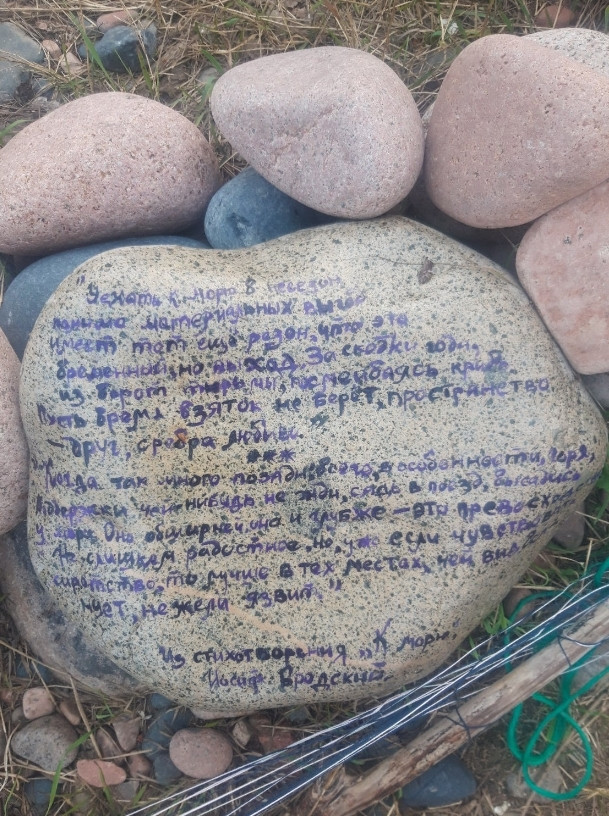 "Уехать к морю в несезон,
помимо материальных выгод
имеет тот ещё резон, что это
временный, но выход. За скобки года,
из ворот тюрьмы, посмеиваясь криво
Пусть время взяток не берёт, пространство
— друг, сребролюбиво.
***
Когда так много позади всего, в особенности, горя,
поддержки чьей-нибудь не жди, сядь в поезд, высадись
у моря. Оно обширнее, оно и глубже — это превосх
Не слишком радостное, но, уж если чувств
сиротство, то лучше в тех местах, чей вид
нует, нежели язвит."
Из стихотворения "К морю"
Иосиф Бродский